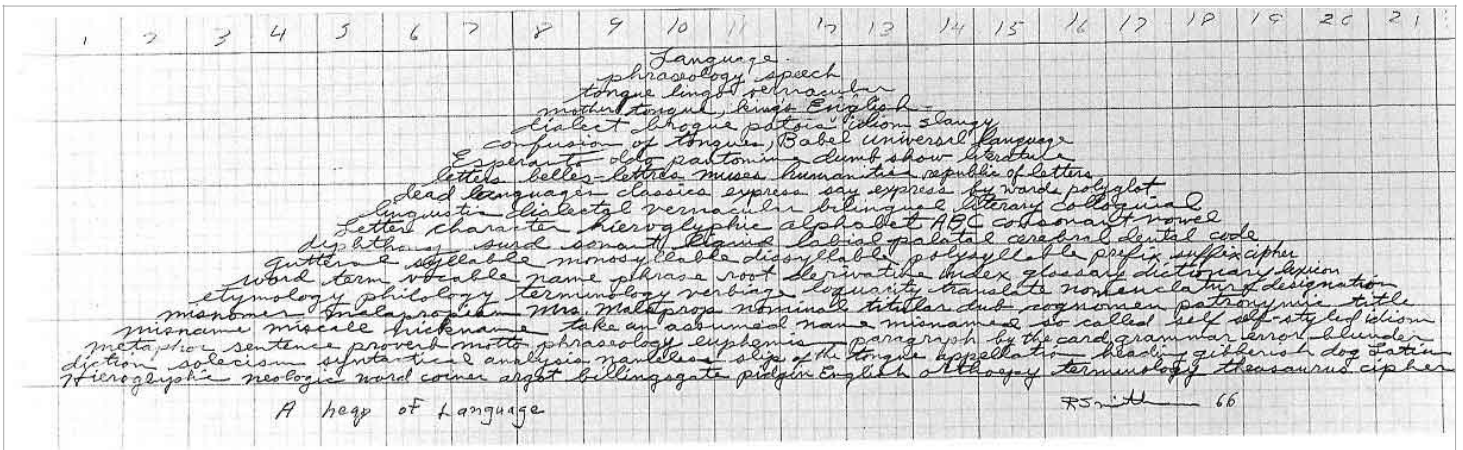 1 2 3 4 5 6 7 8 9 10 11 12 13 14 15 16 17 18 19 20 21
Language.
phraseology speech
tongue lingo vernacular
mother tongue, king's English
dialect brogue patois idiom slangy
confusion of tongues, Babel universal language
Esperanto Ido pantomime dumb show literature
letters belles-lettres muses humanities republic of letters
dead languages classics express say express by words polyglot
linguistic dialectal vernacular bilingual literary colloquial
letter character hieroglyphic alphabet ABC consonant vowel
diphthong surd sonant liquid labial palatal cerebral dental code
guttural syllable monosyllable dissyllable polysyllable prefix suffix cipher
word term vocable name phrase root derivative index glossary dictionary lexicon
etymology philology terminology verbiage loquacity translate nomenclature designation
misnomer malapropism Mrs. Malaprop nominal titular dub cognomen patronymic title
misname miscall nickname take an assumed name misnamed so called self self-styled idiom
metaphor sentence proverb motto phraseology euphemism paragraph by the card grammar error blunder
diction solecism syntactical analysis nameless slip of the tongue appellation heading gibberish dog Latin
Hieroglyphic neologic word coiner argot billingsgate pidgin English orthoepy terminology thesaurus cipher
A heap of Language
RSmith 66